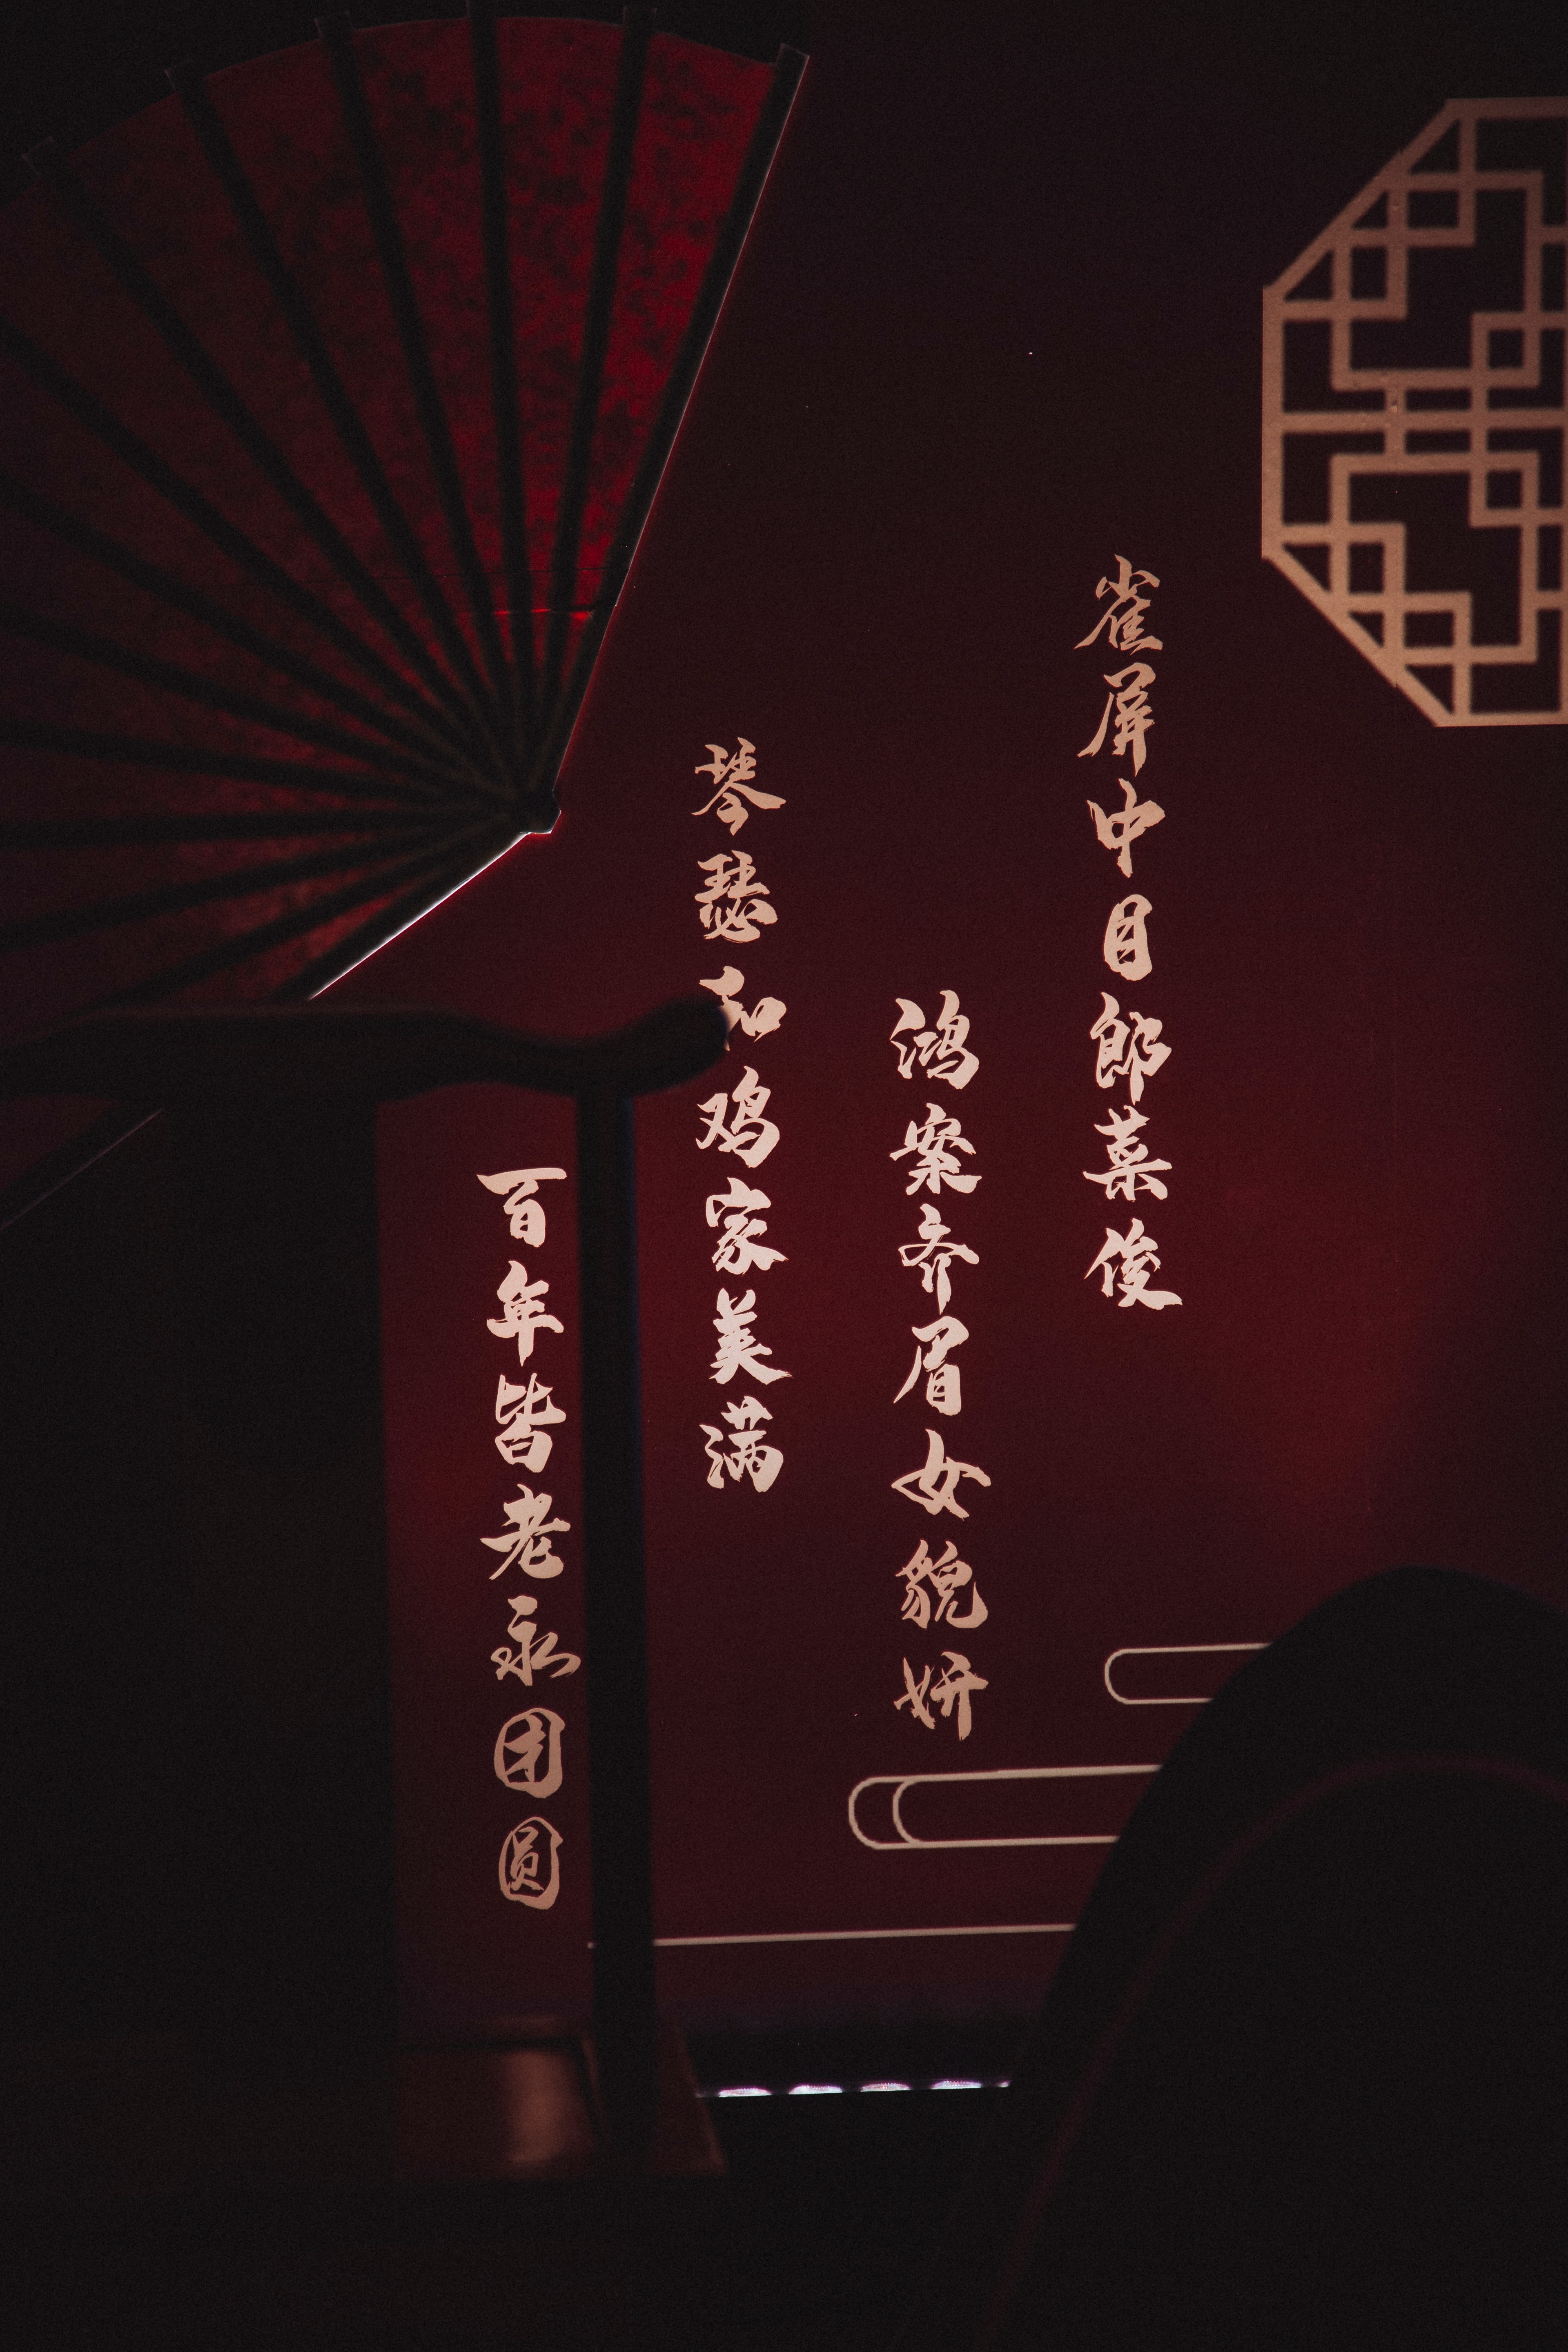 雀屏中目郎菜俊
鸿案齐眉女貌妍
琴瑟和鸡家美满
百年皆老永团圆